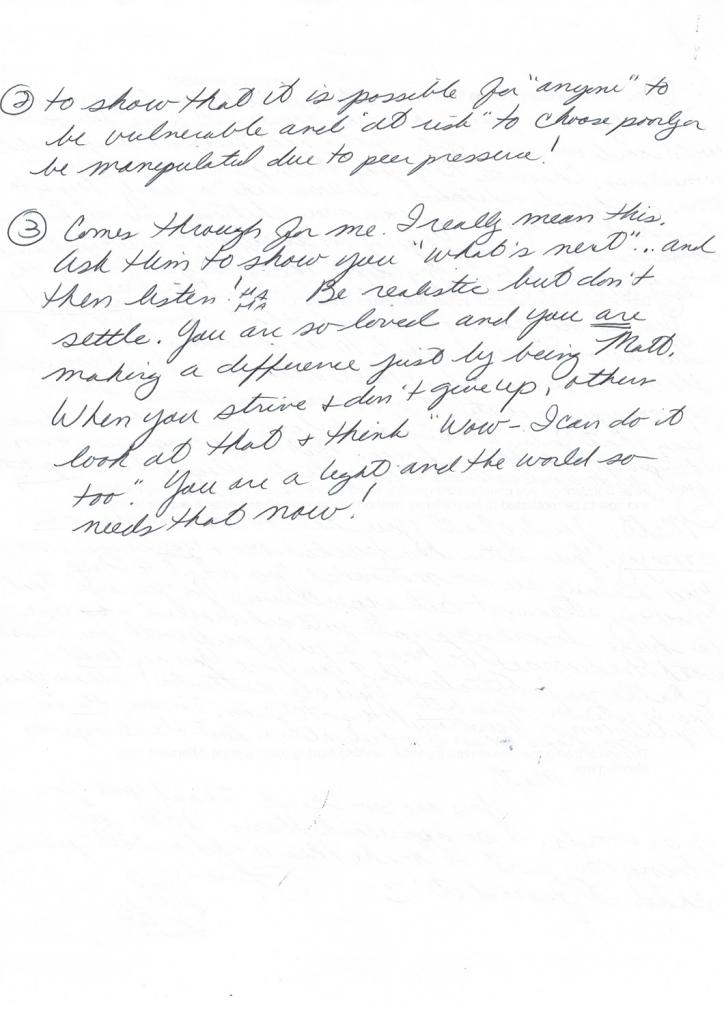 ② to show that it is possible for "anyone" to
be vulnerable and "at risk" to choose poorly or
be manipulated due to peer pressure!
③ Comes through for me. I really mean this.
Ask Him to show you "what's next"... and
then listen! HA HA Be realistic but don't
settle. You are so loved and you are
making a difference just by being Matt.
When you strive & don't give up, others
look at that & think "Wow - I can do it
too". You are a light and the world so
needs that now!